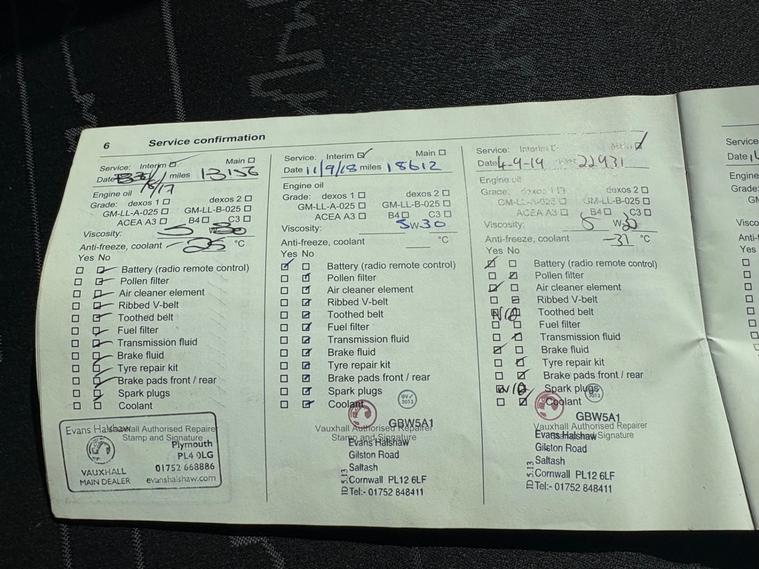 6 Service confirmation
Service: Interim Main
Date miles 13156
8/17
Engine oil
Grade: dexos 1 dexos 2
GM-LL-A-025 GM-LL-B-025
ACEA A3 B4 C3
Viscosity: 5 30
Anti-freeze, coolant -25 °C
Yes No
Battery (radio remote control)
Pollen filter
Air cleaner element
Ribbed V-belt
Toothed belt
Fuel filter
Transmission fluid
Brake fluid
Tyre repair kit
Brake pads front / rear
Spark plugs
Coolant
Vauxhall Authorised Repairer
Stamp and Signature
Evans Halshaw
Plymouth
PL4 0LG
VAUXHALL 01752 668886
MAIN DEALER evanshalshaw.com
Service: Interim Main
Date 11/9/18 miles 18612
Engine oil
Grade: dexos 1 dexos 2
GM-LL-A-025 GM-LL-B-025
ACEA A3 B4 C3
Viscosity: 5W30
Anti-freeze, coolant °C
Yes No
Battery (radio remote control)
Pollen filter
Air cleaner element
Ribbed V-belt
Toothed belt
Fuel filter
Transmission fluid
Brake fluid
Tyre repair kit
Brake pads front / rear
Spark plugs
Coolant
GBW5A1
Vauxhall Authorised Repairer
Stamp and Signature
Evans Halshaw
Gilston Road
Saltash
Cornwall PL12 6LF
Tel:- 01752 848411
ID 5.13
Service: Interim Main
Date 4-9-19 miles 22931
Engine oil
Grade: dexos 1 dexos 2
GM-LL-A-025 GM-LL-B-025
ACEA A3 B4 C3
Viscosity: 5 W30
Anti-freeze, coolant -31 °C
Yes No
Battery (radio remote control)
Pollen filter
Air cleaner element
Ribbed V-belt
N/A Toothed belt
Fuel filter
Transmission fluid
Brake fluid
Tyre repair kit
Brake pads front / rear
N/A Spark plugs
Coolant
GBW5A1
Vauxhall Authorised Repairer
Stamp and Signature
Evans Halshaw
Gilston Road
Saltash
Cornwall PL12 6LF
Tel:- 01752 848411
ID 5.13
Service
Date
Engine
Grade:
Visco
Anti-f
Yes